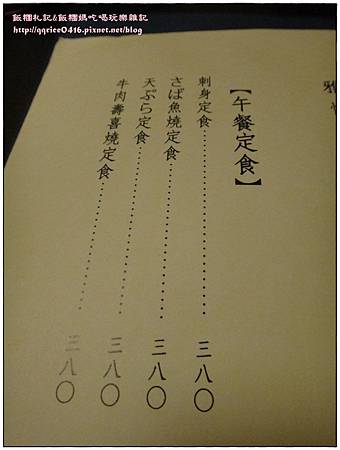 飯糰札記&飯糰媽吃喝玩樂雜記
http://qqrice0416.pixnet.net/blog
【午餐定食】
刺身定食‥‥‥‥‥‥‥‥‥三八〇
さば魚燒定食‥‥‥‥‥‥‥‥三八〇
天ぷら定食‥‥‥‥‥‥‥‥‥三八〇
牛肉壽喜燒定食‥‥‥‥‥‥‥三八〇